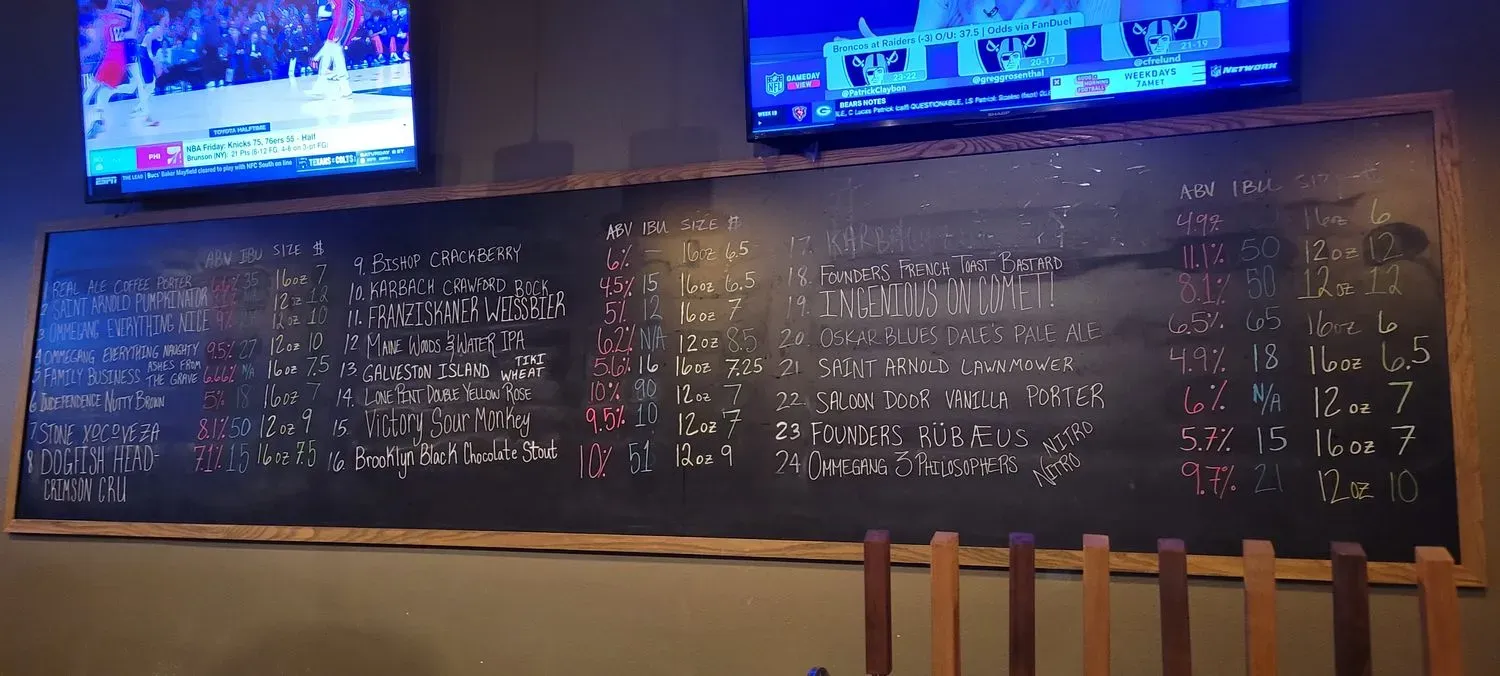 TOYOTA HALFTIME
NBA Friday: Knicks 75, 76ers 55 - Half
Brunson (NY): 21 Pts (8-12 FG, 4-6 on 3-pt FG)
PHI
THE LEAD | Bucs' Baker Mayfield cleared to play with NFC South on line
TEXANS COLTS SATURDAY 8 ET
ESPN
Broncos at Raiders (-3) O/U: 37.5 | Odds via FanDuel
23-22
20-17
21-19
@PatrickClaybon
@greggrosenthal
@cfrelund
NFL GAMEDAY VIEW
GOOD MORNING FOOTBALL
WEEKDAYS 7AM ET
NFL NETWORK
WEEK 18
BEARS NOTES
C Lucas Patrick (calf) QUESTIONABLE, LS Patrick Scales
SHARP
ABV IBU SIZE $
1 REAL ALE COFFEE PORTER 35 16oz 7
2 SAINT ARNOLD PUMPKINATOR 12oz 12
3 OMMEGANG EVERYTHING NICE 9% 12oz 10
4 OMMEGANG EVERYTHING NAUGHTY 9.5% 27 12oz 10
5 FAMILY BUSINESS ASHES FROM THE GRAVE 6.66% N/A 16oz 7.5
6 INDEPENDENCE NUTTY BROWN 5% 18 16oz 7
7 STONE XOCOVEZA 8.1% 50 12oz 9
8 DOGFISH HEAD- 7.1% 15 16oz 7.5
CRIMSON CRU
ABV IBU SIZE $
9. BISHOP CRACKBERRY 6% — 16oz 6.5
10. KARBACH CRAWFORD BOCK 4.5% 15 16oz 6.5
11. FRANZISKANER WEISSBIER 5% 12 16oz 7
12 MAINE WOODS & WATER IPA 6.2% N/A 12oz 8.5
13 GALVESTON ISLAND TIKI WHEAT 5.6% 16 16oz 7.25
14. LONE PINT DOUBLE YELLOW ROSE 10% 90 12oz 7
15. VICTORY SOUR MONKEY 9.5% 10 12oz 7
16. Brooklyn Black Chocolate Stout 10% 51 12oz 9
ABV IBU SIZE
17. KARBACH 4.9% 16oz 6
18. FOUNDERS FRENCH TOAST BASTARD 11.1% 50 12oz 12
19. INGENIOUS ON COMET! 8.1% 50 12oz 12
20. OSKAR BLUES DALE'S PALE ALE 6.5% 65 16oz 6
21. SAINT ARNOLD LAWNMOWER 4.9% 18 16oz 6.5
22. SALOON DOOR VANILLA PORTER 6% N/A 12oz 7
23 FOUNDERS RÜBÆUS NITRO 5.7% 15 16oz 7
24 OMMEGANG 3 PHILOSOPHERS NITRO 9.7% 21 12oz 10